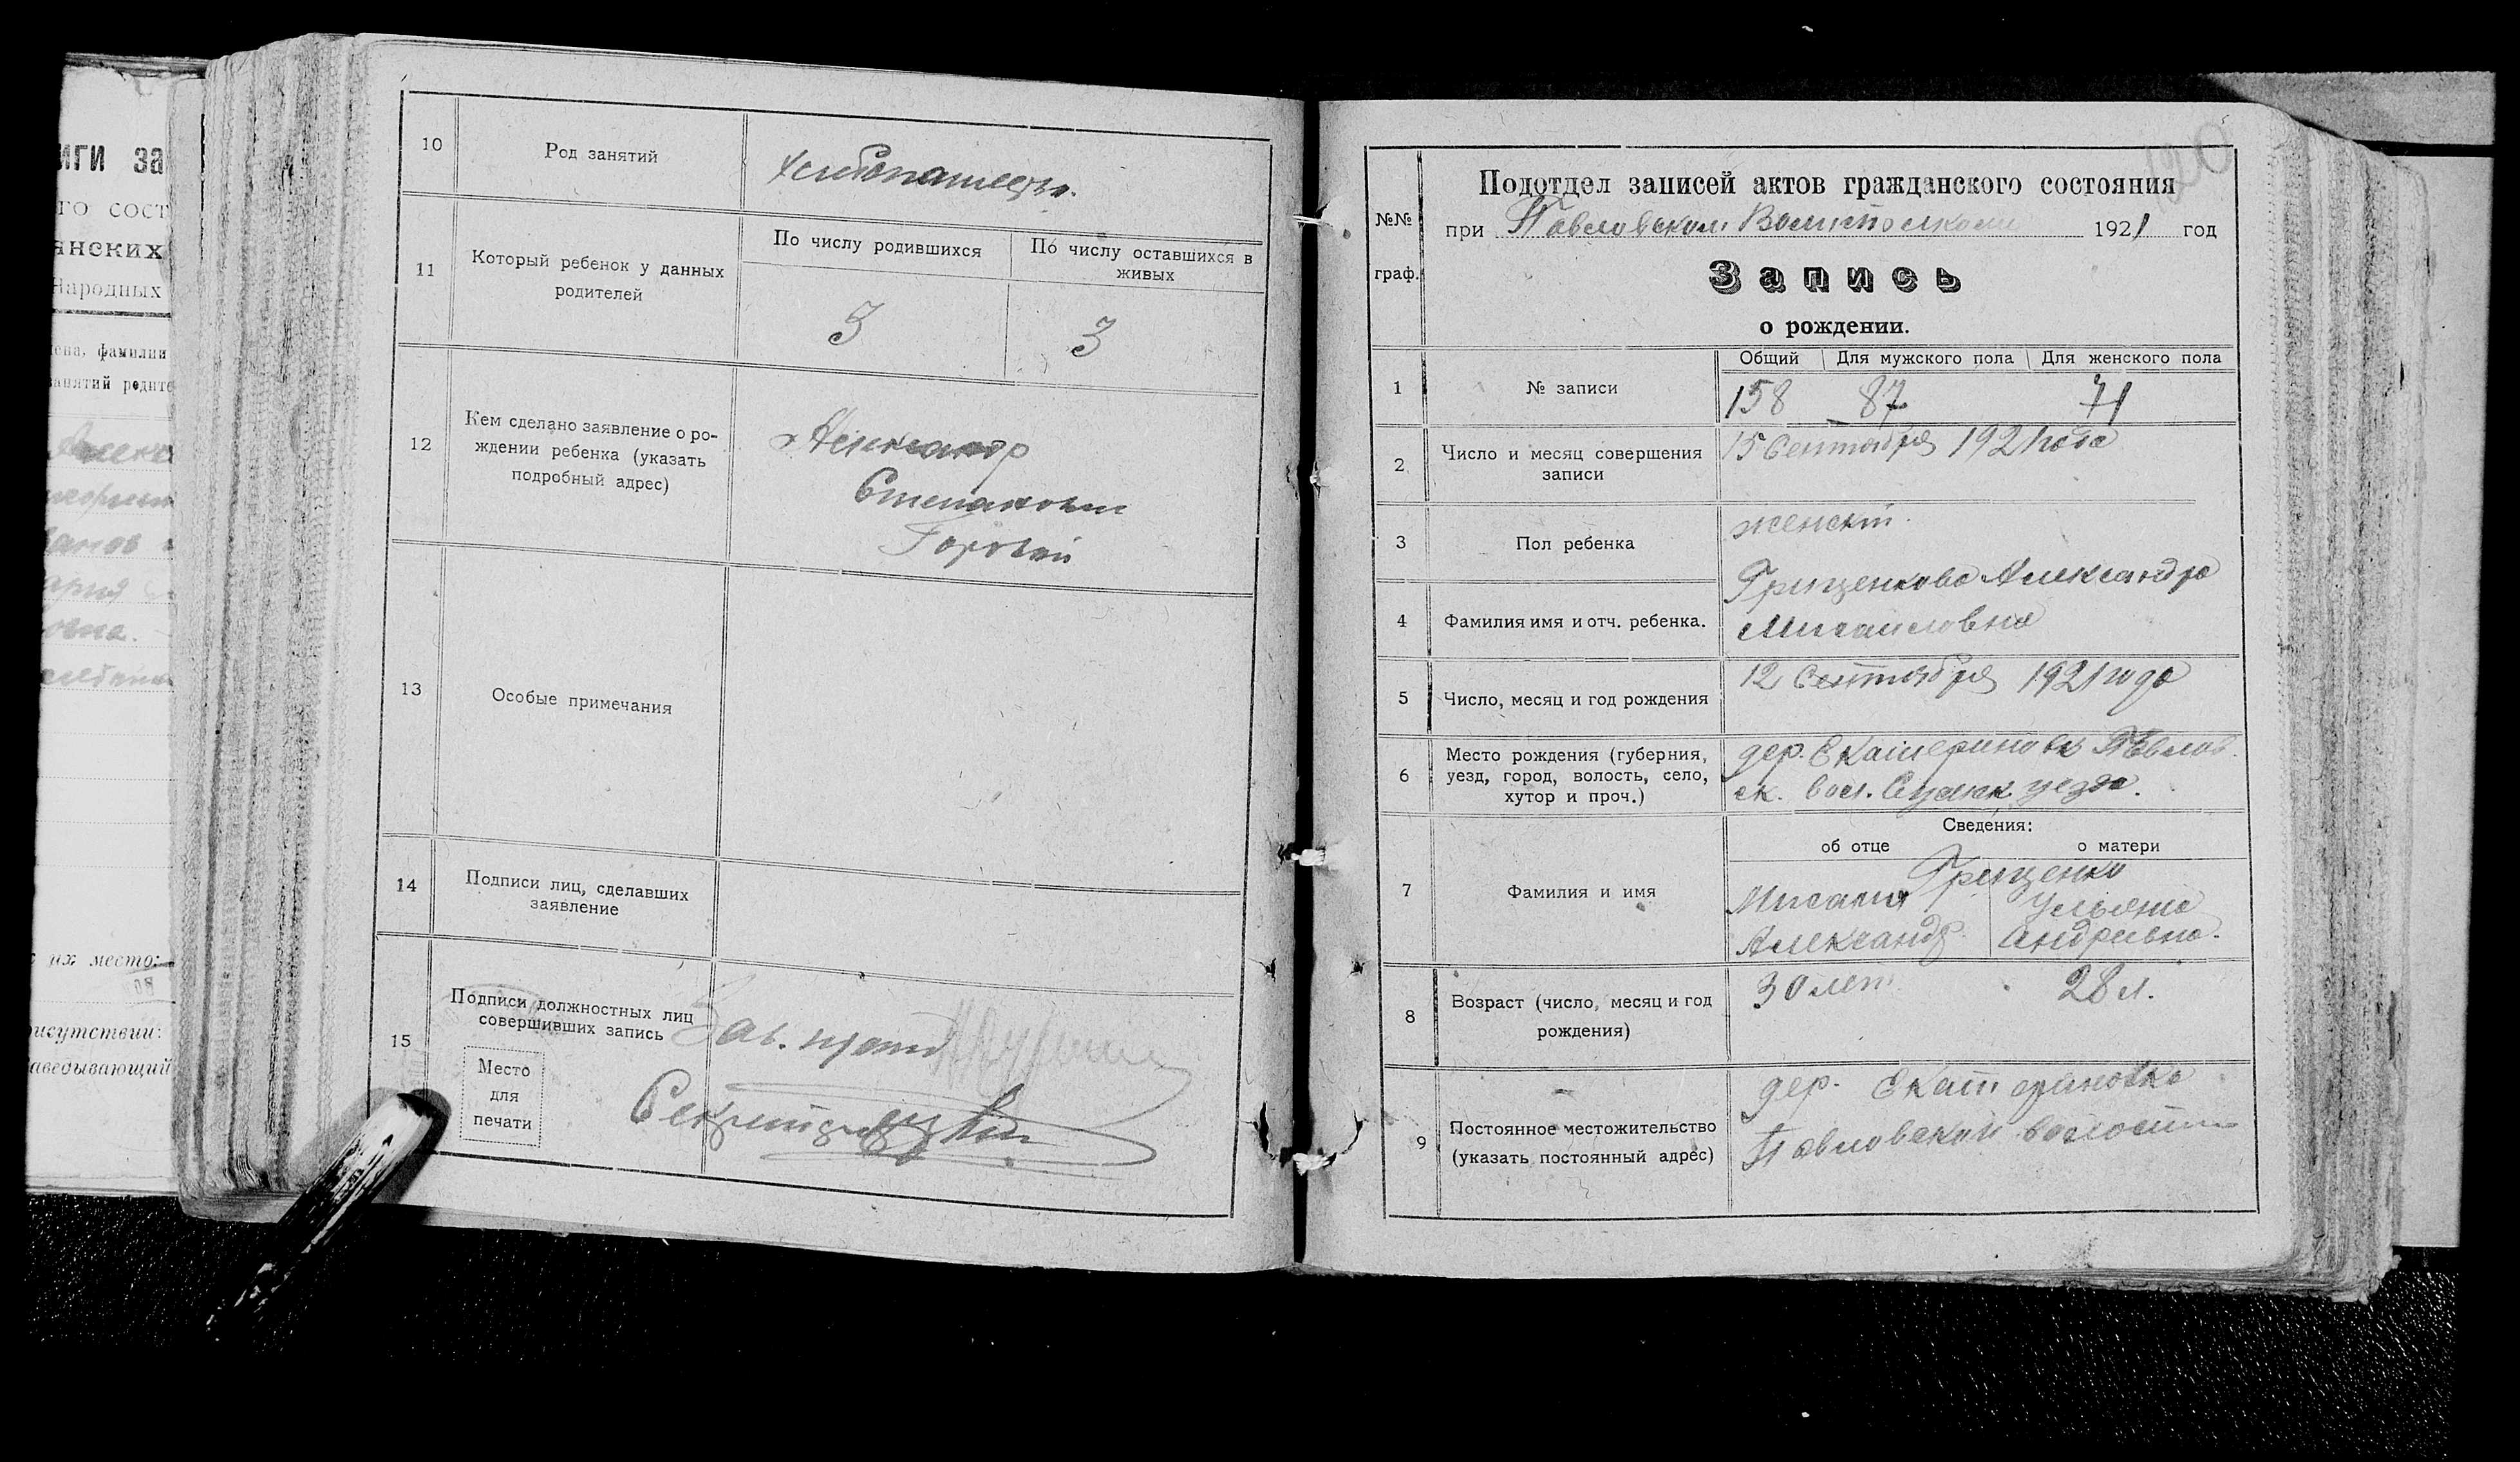 иги за
го сост
анских
Народных
ена, фамилии
занятий родите
их место:
рисутствии:
аведывающий
10
Род занятий
Хлебопашецы.
11
Который ребенок у данных
родителей
По числу родившихся
По числу оставшихся в
живых
3
3
12
Кем сделано заявление о ро-
ждении ребенка (указать
подробный адрес)
Александр
Степанович
Горовый
13
Особые примечания
14
Подписи лиц, сделавших
заявление
15
Подписи должностных лиц
совершивших запись
Место
для
печати
Зав.
Секретарь
120
№№
граф.
Подотдел записей актов гражданского состояния
при Павловском Волисполкоме 1921 год
Запись
о рождении.
Общий Для мужского пола Для женского пола
1
№ записи
158 87 71
2
Число и месяц совершения
записи
15 Сентября 1921 года
3
Пол ребенка
женский.
4
Фамилия имя и отч. ребенка.
Грищенкова Александра
Михаиловна
5
Число, месяц и год рождения
12 Сентября 1921 года
6
Место рождения (губерния,
уезд, город, волость, село,
хутор и проч.)
дер. Екатериновк Павлов.
ск. вол. Сумск. уезда.
7
Фамилия и имя
Сведения:
об отце о матери
Грищенко
Михаил Ульяна
Александр. Андреевна.
8
Возраст (число, месяц и год
рождения)
30 лет. 28 л.
9
Постоянное местожительство
(указать постоянный адрес)
дер. Екатериновка
Павловской волости